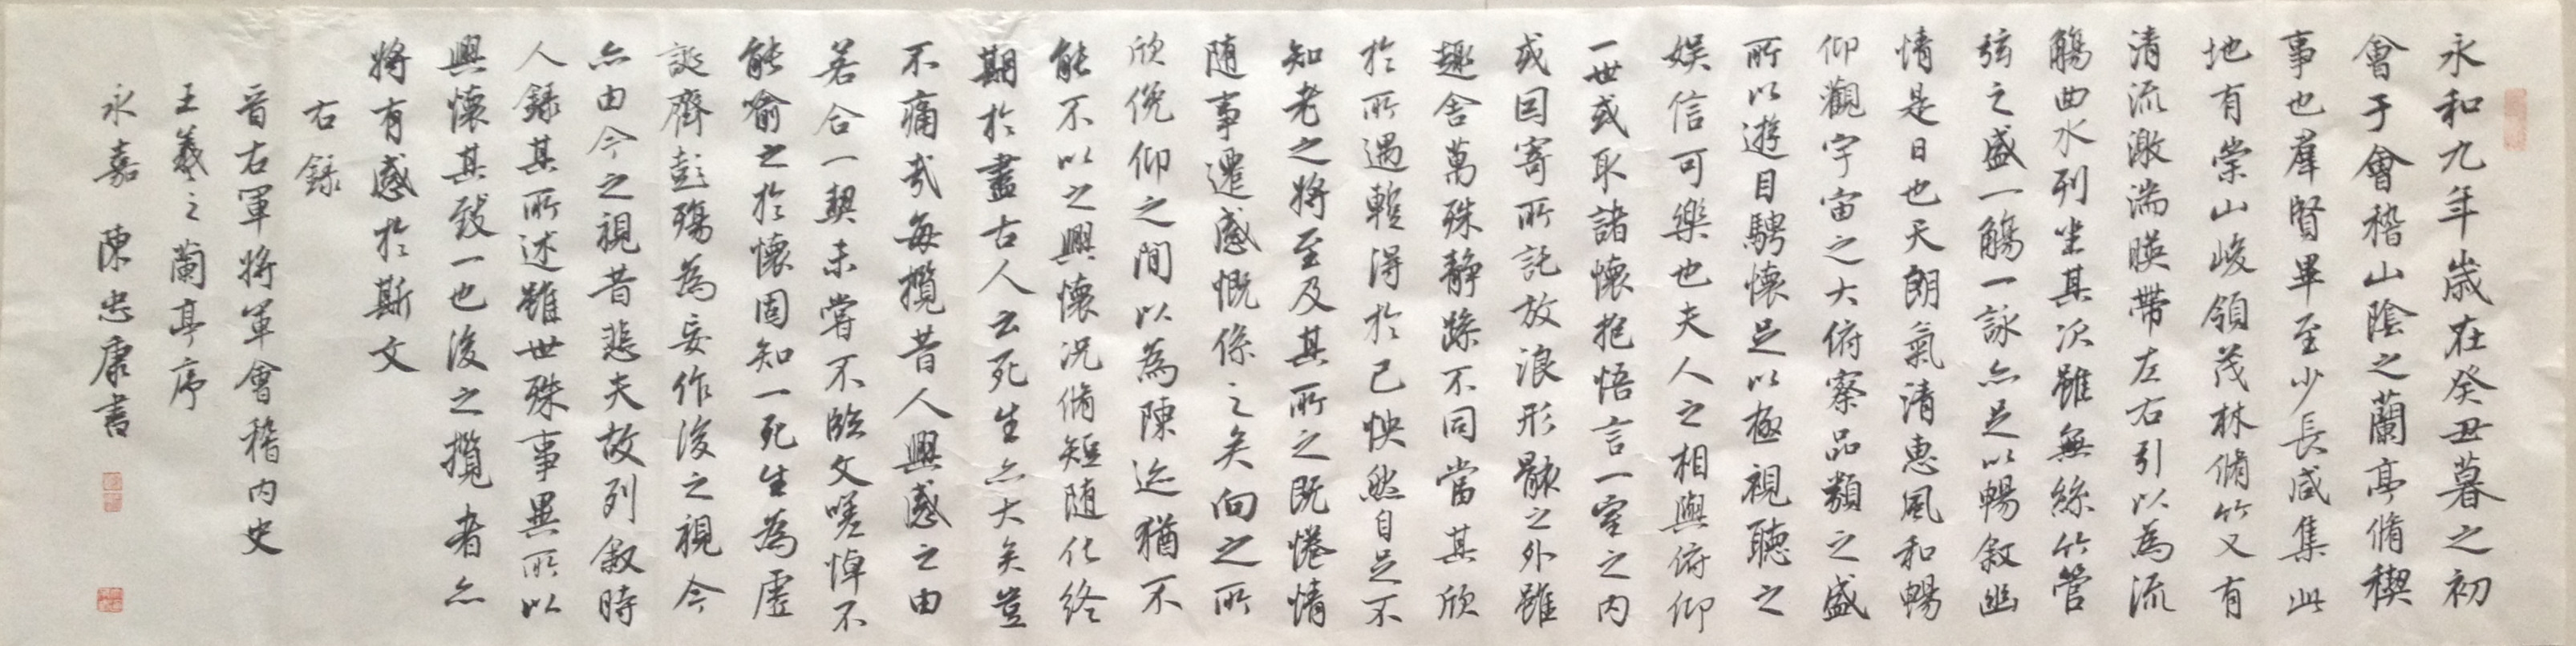 永和九年歲在癸丑暮之初
會于會稽山陰之蘭亭脩稧
事也羣賢畢至少長咸集此
地有崇山峻領茂林脩竹又有
清流激湍暎帶左右引以為流
觴曲水列坐其次雖無絲竹管
弦之盛一觴一詠亦足以暢敘幽
情是日也天朗氣清惠風和暢
仰觀宇宙之大俯察品類之盛
所以遊目騁懷足以極視聽之
娛信可樂也夫人之相與俯仰
一世或取諸懷抱悟言一室之內
或因寄所託放浪形骸之外雖
趣舍萬殊靜躁不同當其欣
於所遇蹔得於己怏然自足不
知老之將至及其所之既惓情
随事遷感慨係之矣向之所
欣俛仰之間以為陳迹猶不
能不以之興懷況脩短随化終
期於盡古人云死生亦大矣豈
不痛哉每攬昔人興感之由
若合一契未嘗不臨文嗟悼不
能喻之於懷固知一死生為虛
誕齊彭殤為妄作後之視今
亦由今之視昔悲夫故列敘時
人錄其所述雖世殊事異所以
興懷其致一也後之攬者亦
將有感於斯文
右錄
晉右軍將軍會稽內史
王羲之蘭亭序
永嘉陳忠康書